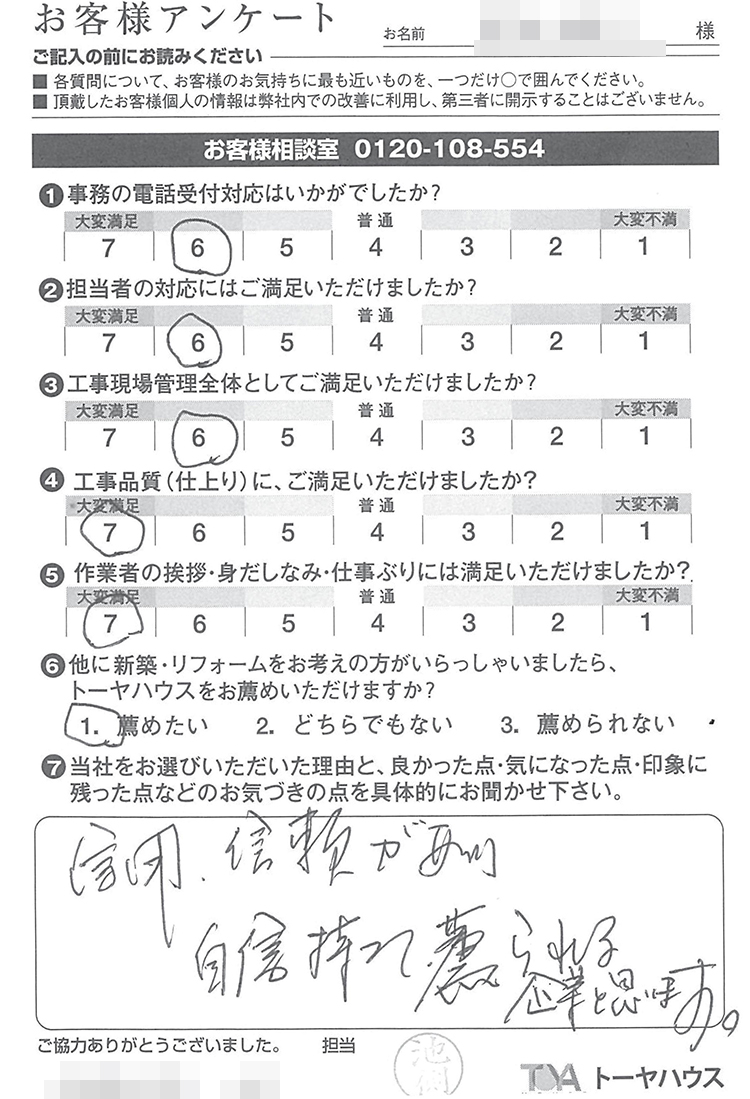 お客様アンケート
お名前 様
ご記入の前にお読みください
■ 各質問について、お客様のお気持ちに最も近いものを、一つだけ○で囲んでください。
■ 頂戴したお客様個人の情報は弊社内での改善に利用し、第三者に開示することはございません。
お客様相談室 0120-108-554
❶事務の電話受付対応はいかがでしたか?
大変満足 普通 大変不満
7 6 5 4 3 2 1
❷担当者の対応にはご満足いただけましたか?
大変満足 普通 大変不満
7 6 5 4 3 2 1
❸工事現場管理全体としてご満足いただけましたか?
大変満足 普通 大変不満
7 6 5 4 3 2 1
❹工事品質(仕上り)に、ご満足いただけましたか?
大変満足 普通 大変不満
7 6 5 4 3 2 1
❺作業者の挨拶・身だしなみ・仕事ぶりには満足いただけましたか?
大変満足 普通 大変不満
7 6 5 4 3 2 1
❻他に新築・リフォームをお考えの方がいらっしゃいましたら、
トーヤハウスをお薦めいただけますか?
1. 薦めたい 2. どちらでもない 3. 薦められない
❼当社をお選びいただいた理由と、良かった点・気になった点・印象に
残った点などのお気づきの点を具体的にお聞かせ下さい。
信用、信頼が
自信持って薦られる
企業と思います。
ご協力ありがとうございました。 担当
TOYA トーヤハウス